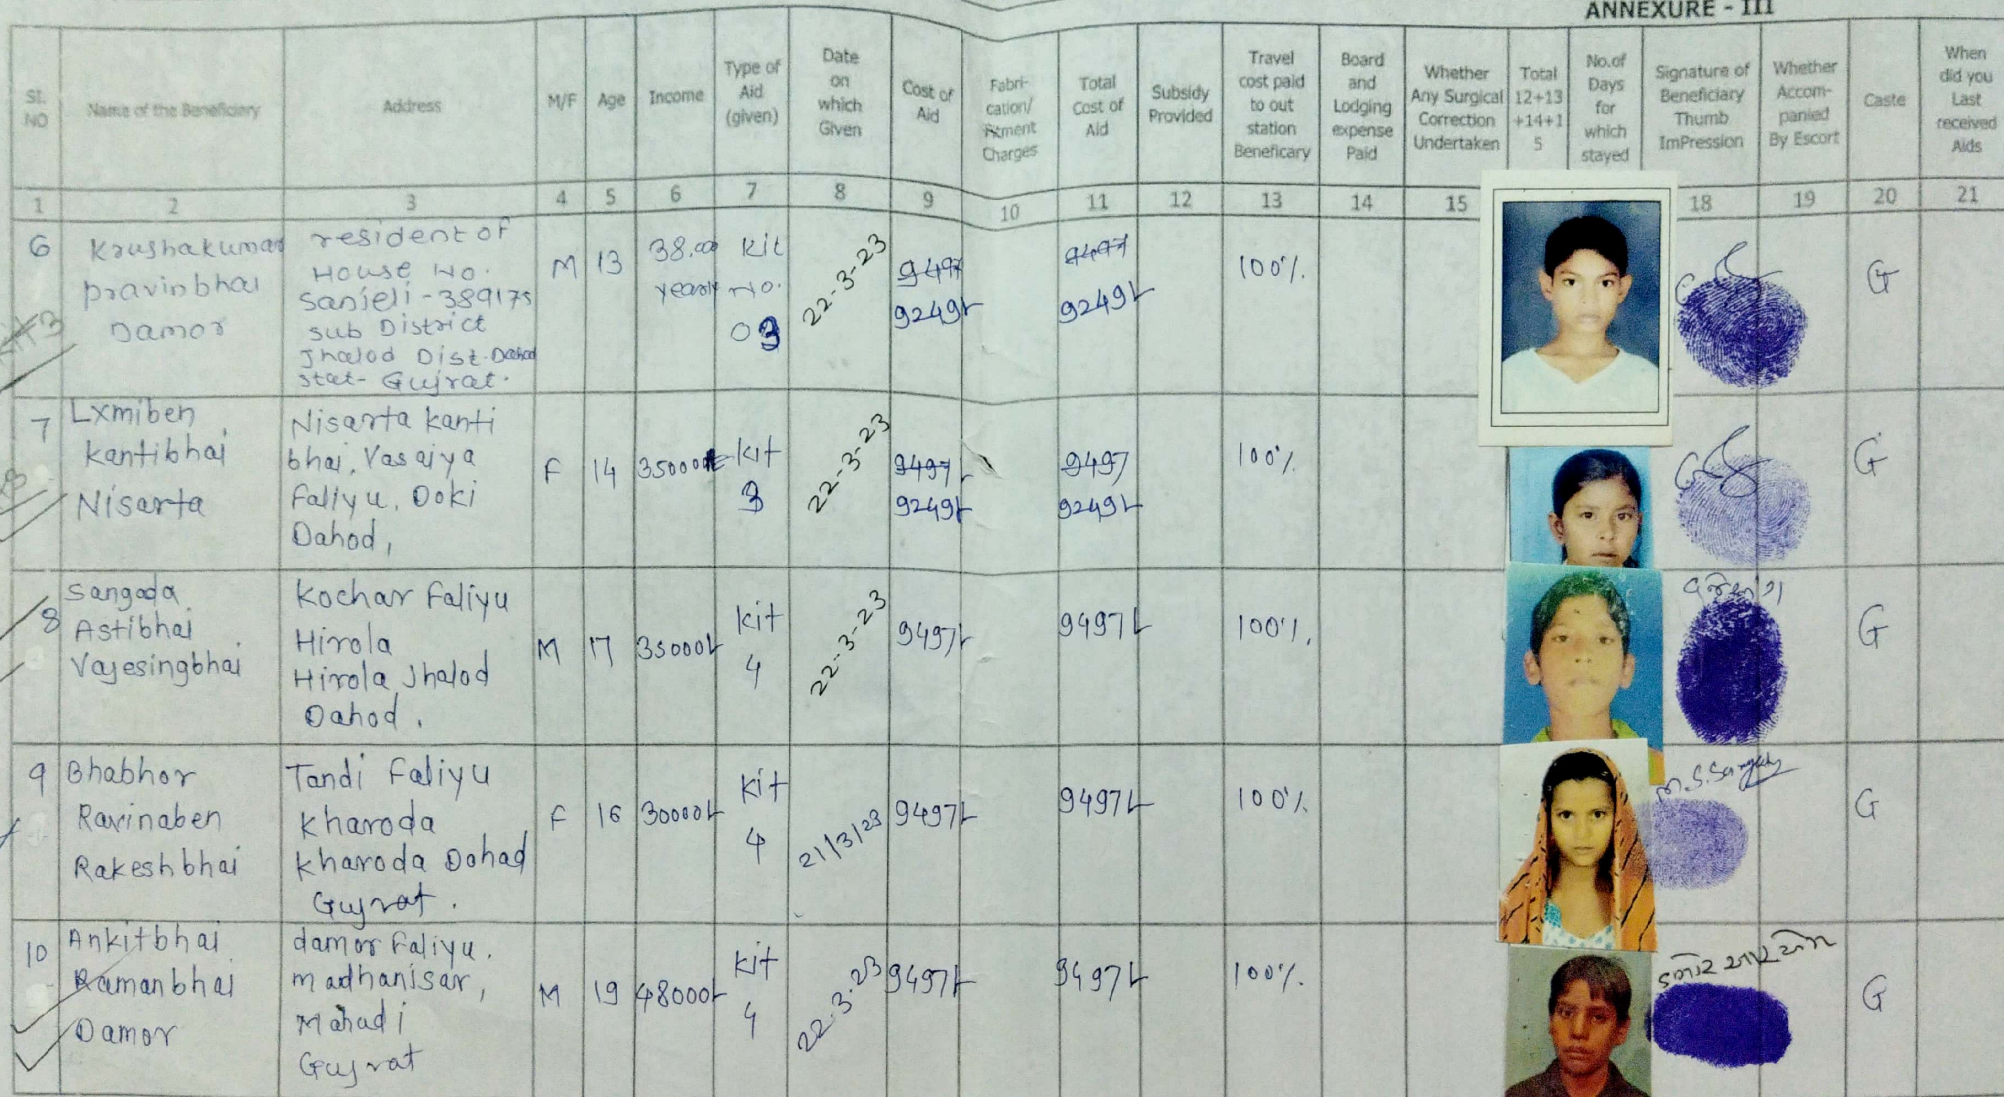 ANNEXURE - III
Sl. NO
Name of the Beneficiary
Address
M/F
Age
Income
Type of
Aid
(given)
Date
on
which
Given
Cost of
Aid
Fabri-
cation/
Fitment
Charges
Total
Cost of
Aid
Subsidy
Provided
Travel
cost paid
to out
station
Beneficary
Board
and
Lodging
expense
Paid
Whether
Any Surgical
Correction
Undertaken
Total
12+13
+14+1
5
No.of
Days
for
which
stayed
Signature of
Beneficiary
Thumb
ImPression
Whether
Accom-
panied
By Escort
Caste
When
did you
Last
received
Aids
1 2 3 4 5 6 7 8 9 10 11 12 13 14 15 18 19 20 21
6
Krushakumar
pravinbhai
Damor
resident of
House No.
Sanjeli - 389175
sub District
Jhalod Dist. Dahod
stat- Gujrat.
M
13
38.00
yearly
kit
No.
03
22-3-23
9497
9249/-
9497
9249/-
100%
G
7
Lxmiben
kantibhai
Nisarta
Nisarta kanti
bhai, Vasaiya
faliyu, Doki
Dahod,
F
14
35000/-
kit
3
22-3-23
9497/-
9249/-
9497
9249/-
100%
G
8
Sangada
Astibhai
Vajesingbhai
Kochar Faliyu
Hirola
Hirola Jhalod
Dahod,
M
17
35000/-
kit
4
22-3-23
9497/-
9497/-
100%
G
9
Bhabhor
Ravinaben
Rakeshbhai
Tandi Faliyu
kharoda
kharoda Dahad
Gujrat.
F
16
30000/-
kit
4
21/3/23
9497/-
9497/-
100%
M.S.Sangada
G
10
Ankitbhai
Ramanbhai
Damor
damor Faliyu,
madhanisar,
Mahadi
Gujrat
M
19
48000/-
kit
4
22-3-23
9497/-
9497/-
100%
G